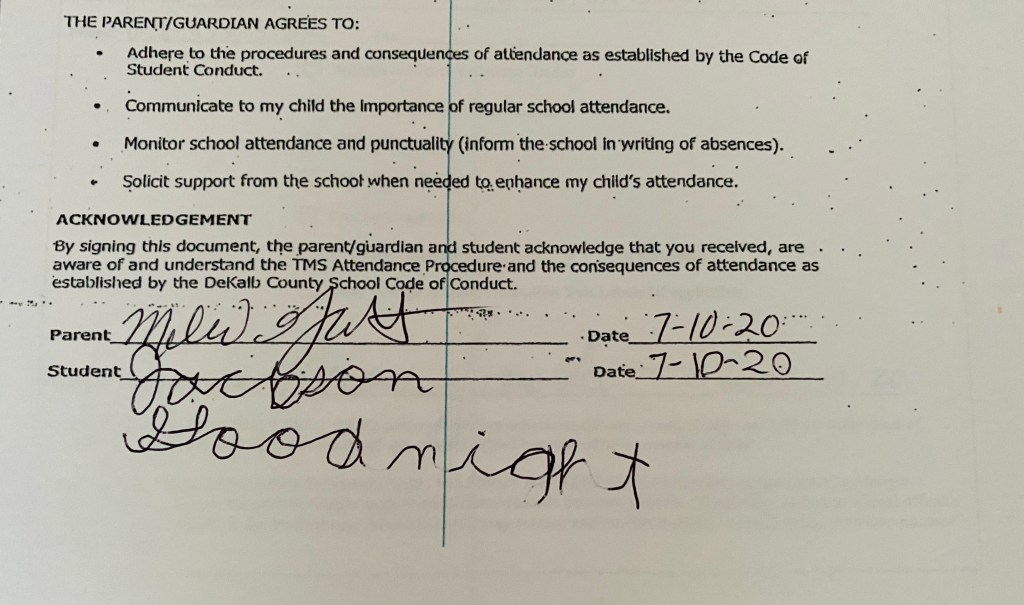 THE PARENT/GUARDIAN AGREES TO:
• Adhere to the procedures and consequences of attendance as established by the Code of
Student Conduct.
• Communicate to my child the importance of regular school attendance.
• Monitor school attendance and punctuality (inform the school in writing of absences).
• Solicit support from the school when needed to enhance my child's attendance.
ACKNOWLEDGEMENT
By signing this document, the parent/guardian and student acknowledge that you received, are
aware of and understand the TMS Attendance Procedure and the consequences of attendance as
established by the DeKalb County School Code of Conduct.
Parent Date 7-10-20
Student Jackson Date 7-10-20
Goodnight